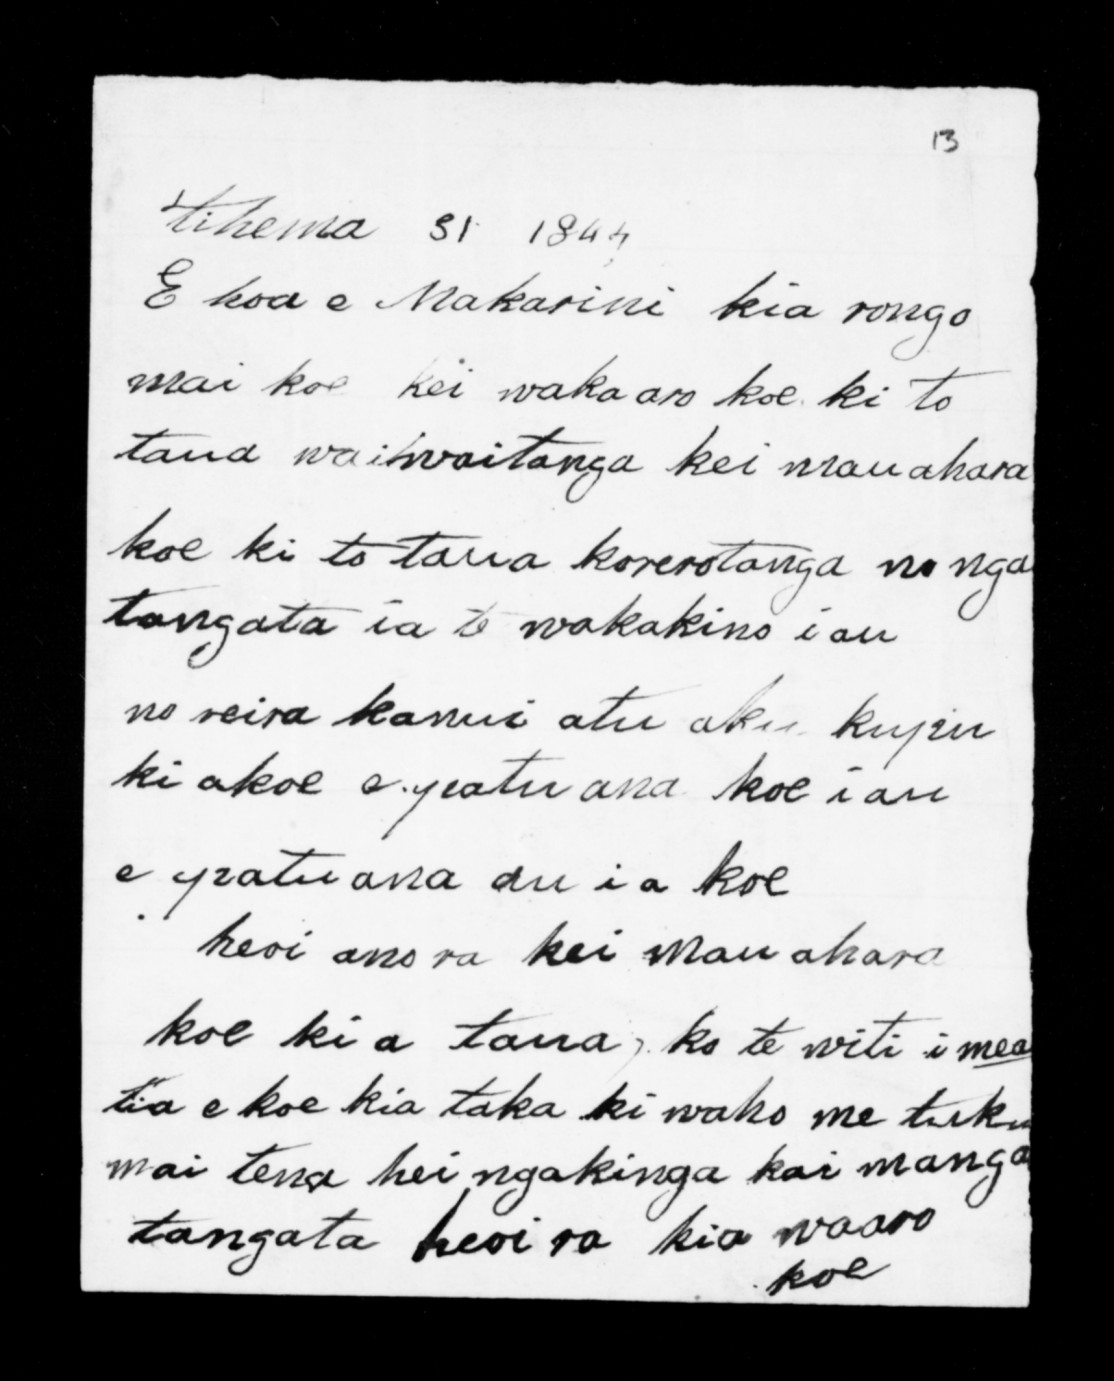 13
Tihema 31 1844
E hoa e Makarini kia rongo
mai koe kei wakaaro koe ki to
taua waiwaitanga kei mauahara
koe ki to taua korerotanga no nga
tangata ia te wakakino i au
no reira kanui atu aku kupu
ki akoe e patu ana koe i au
e patu ana au i a koe
heoi ano ra kei mauahara
koe ki a taua, ko te witi i mea
tia e koe kia taka ki waho me tuku
mai tena hei ngakinga kai manga
tangata heoi ra kia waaro
koe